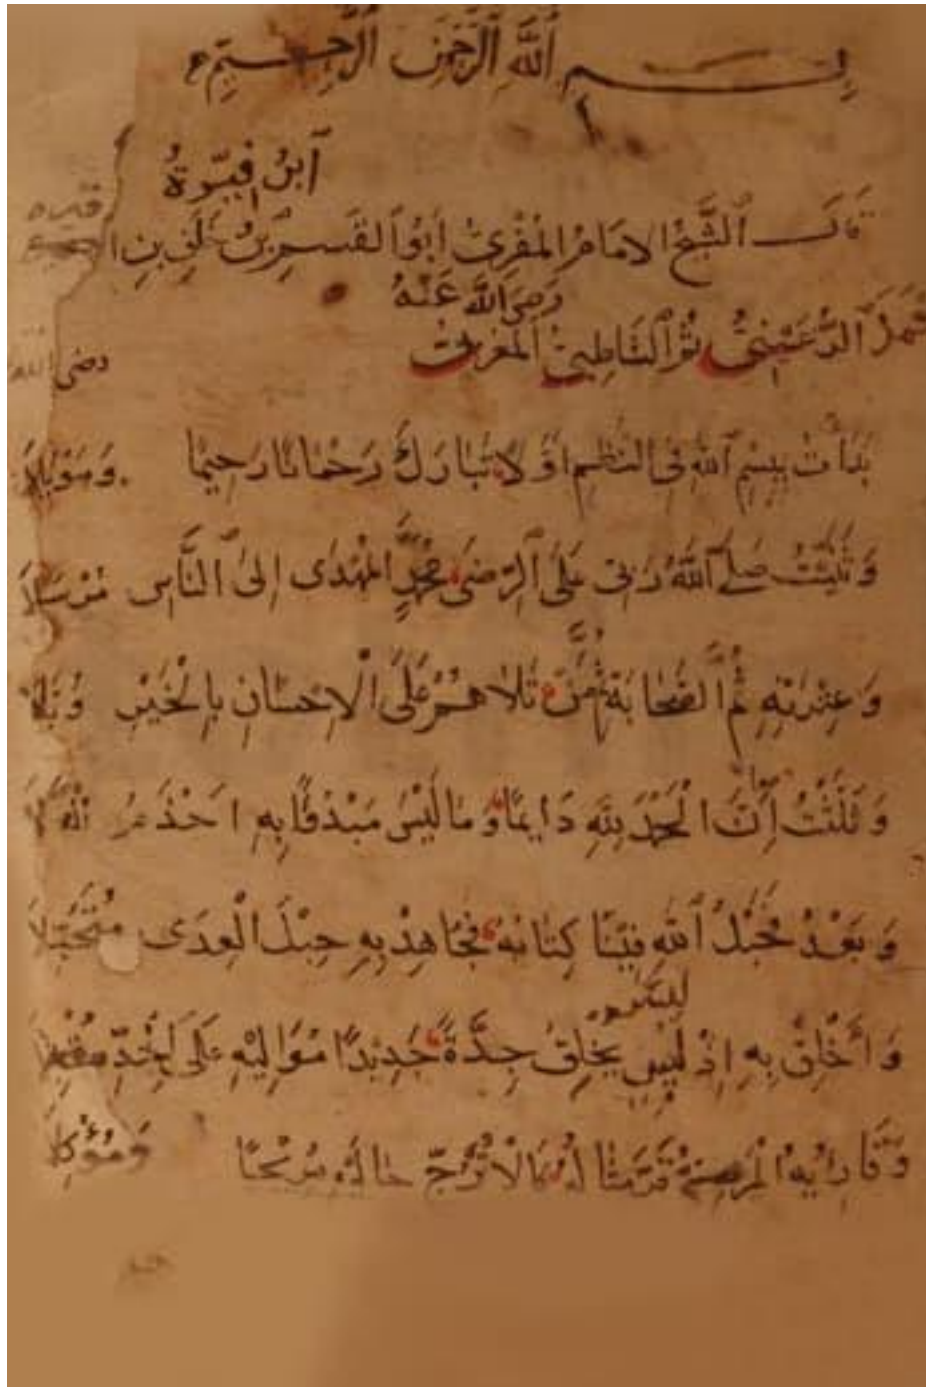 بِسْمِ ٱللَّهِ ٱلرَّحْمَٰنِ ٱلرَّحِيمِ
ٱبْنُ فِيرُّهُ
قَالَ ٱلشَّيْخُ الامَامُ المُقْرِئُ أَبُو ٱلقَسِمِ بْنُ خَلَفِ بْنِ ا
رَضِيَ اللَّهُ عَنْهُ
الرُّعَيْنِيُّ ثُمَّ ٱلشَّاطِبِيُّ ٱلمُقْرِئُ
رضى الله
بَدَأْتُ بِبِسْمِ ٱللَّهِ فِى النَّظْمِ أوَّلَا تَبَارَكَ رَحْمَانًا رَحِيمًا وَمَوْئِلَا
وَثَنَّيْتُ صَلَّى ٱللَّهُ رَبِّى عَلَى ٱلرِّضَى مُحَمَّدٍ المُهْدَى إِلَى ٱلنَّاسِ مُرْسَلَا
وَعِتْرَتِهِ ثُمَّ ٱلصَّحَابَةِ ثُمَّ مَنْ تَلَاهُمْ عَلَى الْإِحْسَانِ بِالْخَيْرِ وُبَّلَا
وَثَلَّثْتُ أَنَّ الْحَمْدَ لِلَّهِ دَايِمًا وَمَا لَيْسَ مَبْدُوًّا بِهِ اجْذَمُ الْعَلَا
وَبَعْدُ فَحَبْلُ ٱللَّهِ فِينَا كِتَابُهُ فَجَاهِدْ بِهِ حِبْلَ الْعِدَى مُتَحَبِّلَا
لَيْسَ
وَأَخْلِقْ بِهِ اِذْ لَيْسَ يَخْلِقُ جِدَّةً جَدِيدًا مُوَالِيهِ عَلَى الْجِدِّ مُقْبِلَا
وَقَارِئُهُ الْمَرْضِىُّ قَرَّ مِثَالُهُ كَالْأُتْرُجِّ حَالَيْهِ مُرِيحًا وَمُوكِلَا